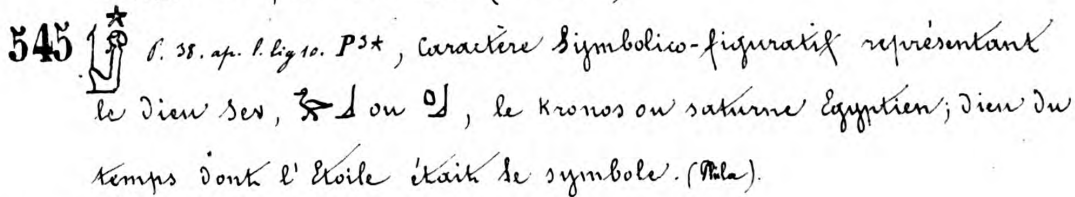 545 P. 38. ap. l. lig 10. P3*, Caractère Symbolico-figuratif représentant
le Dieu Sev, ou , le Kronos ou saturne Egyptien; Dieu du
temps dont l'Etoile était le symbole. (Phila).